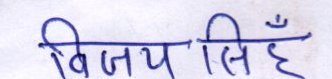 विजय सिहँ